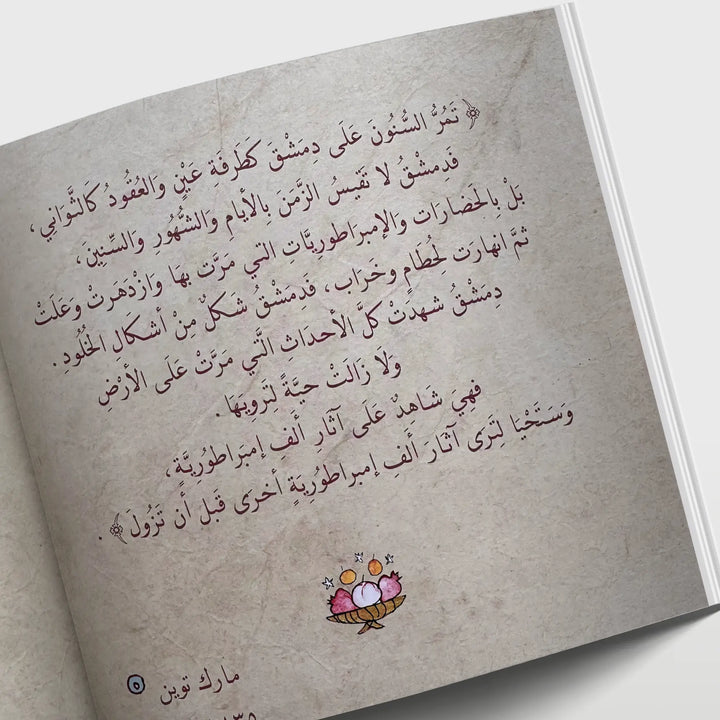 ﴿ تَمُرُّ السُّنُونَ عَلَى دِمَشْقَ كَطَرفَةِ عَيْنٍ وَالعُقُودُ كَالثَّوَاني،
فَدِمَشْقُ لا تَقيْسُ الزَّمَنَ بِالأيامِ وَالشُّهُورِ وَالسِّنِينَ،
بَلْ بِالحَضارَات وَالإمبرَاطورِيَّات التي مَرَّت بهَا وَازْدَهَرتْ وَعَلَتْ
ثمَّ انهارَت لِحُطامٍ وخَرَاب، فَدِمَشْقُ شَكلٌ مِنْ أشكَالِ الخُلُودِ.
دِمَشْقُ شهدَتْ كلَّ الأحدَاث الَّتي مَرَّتْ عَلَى الأرْضِ
وَلا زَالَتْ حيَّةً لِتَرويَهَا.
فهِيَ شَاهِدٌ عَلَى آثَارِ ألفِ إمبَراطُورِيَّةٍ،
وَسَتَحْيَا لِتَرَى آثَارَ ألفِ إمبراطُورِيَةٍ أخرَى قبْل أن تَزُولَ ﴾.
مارك توين
٥